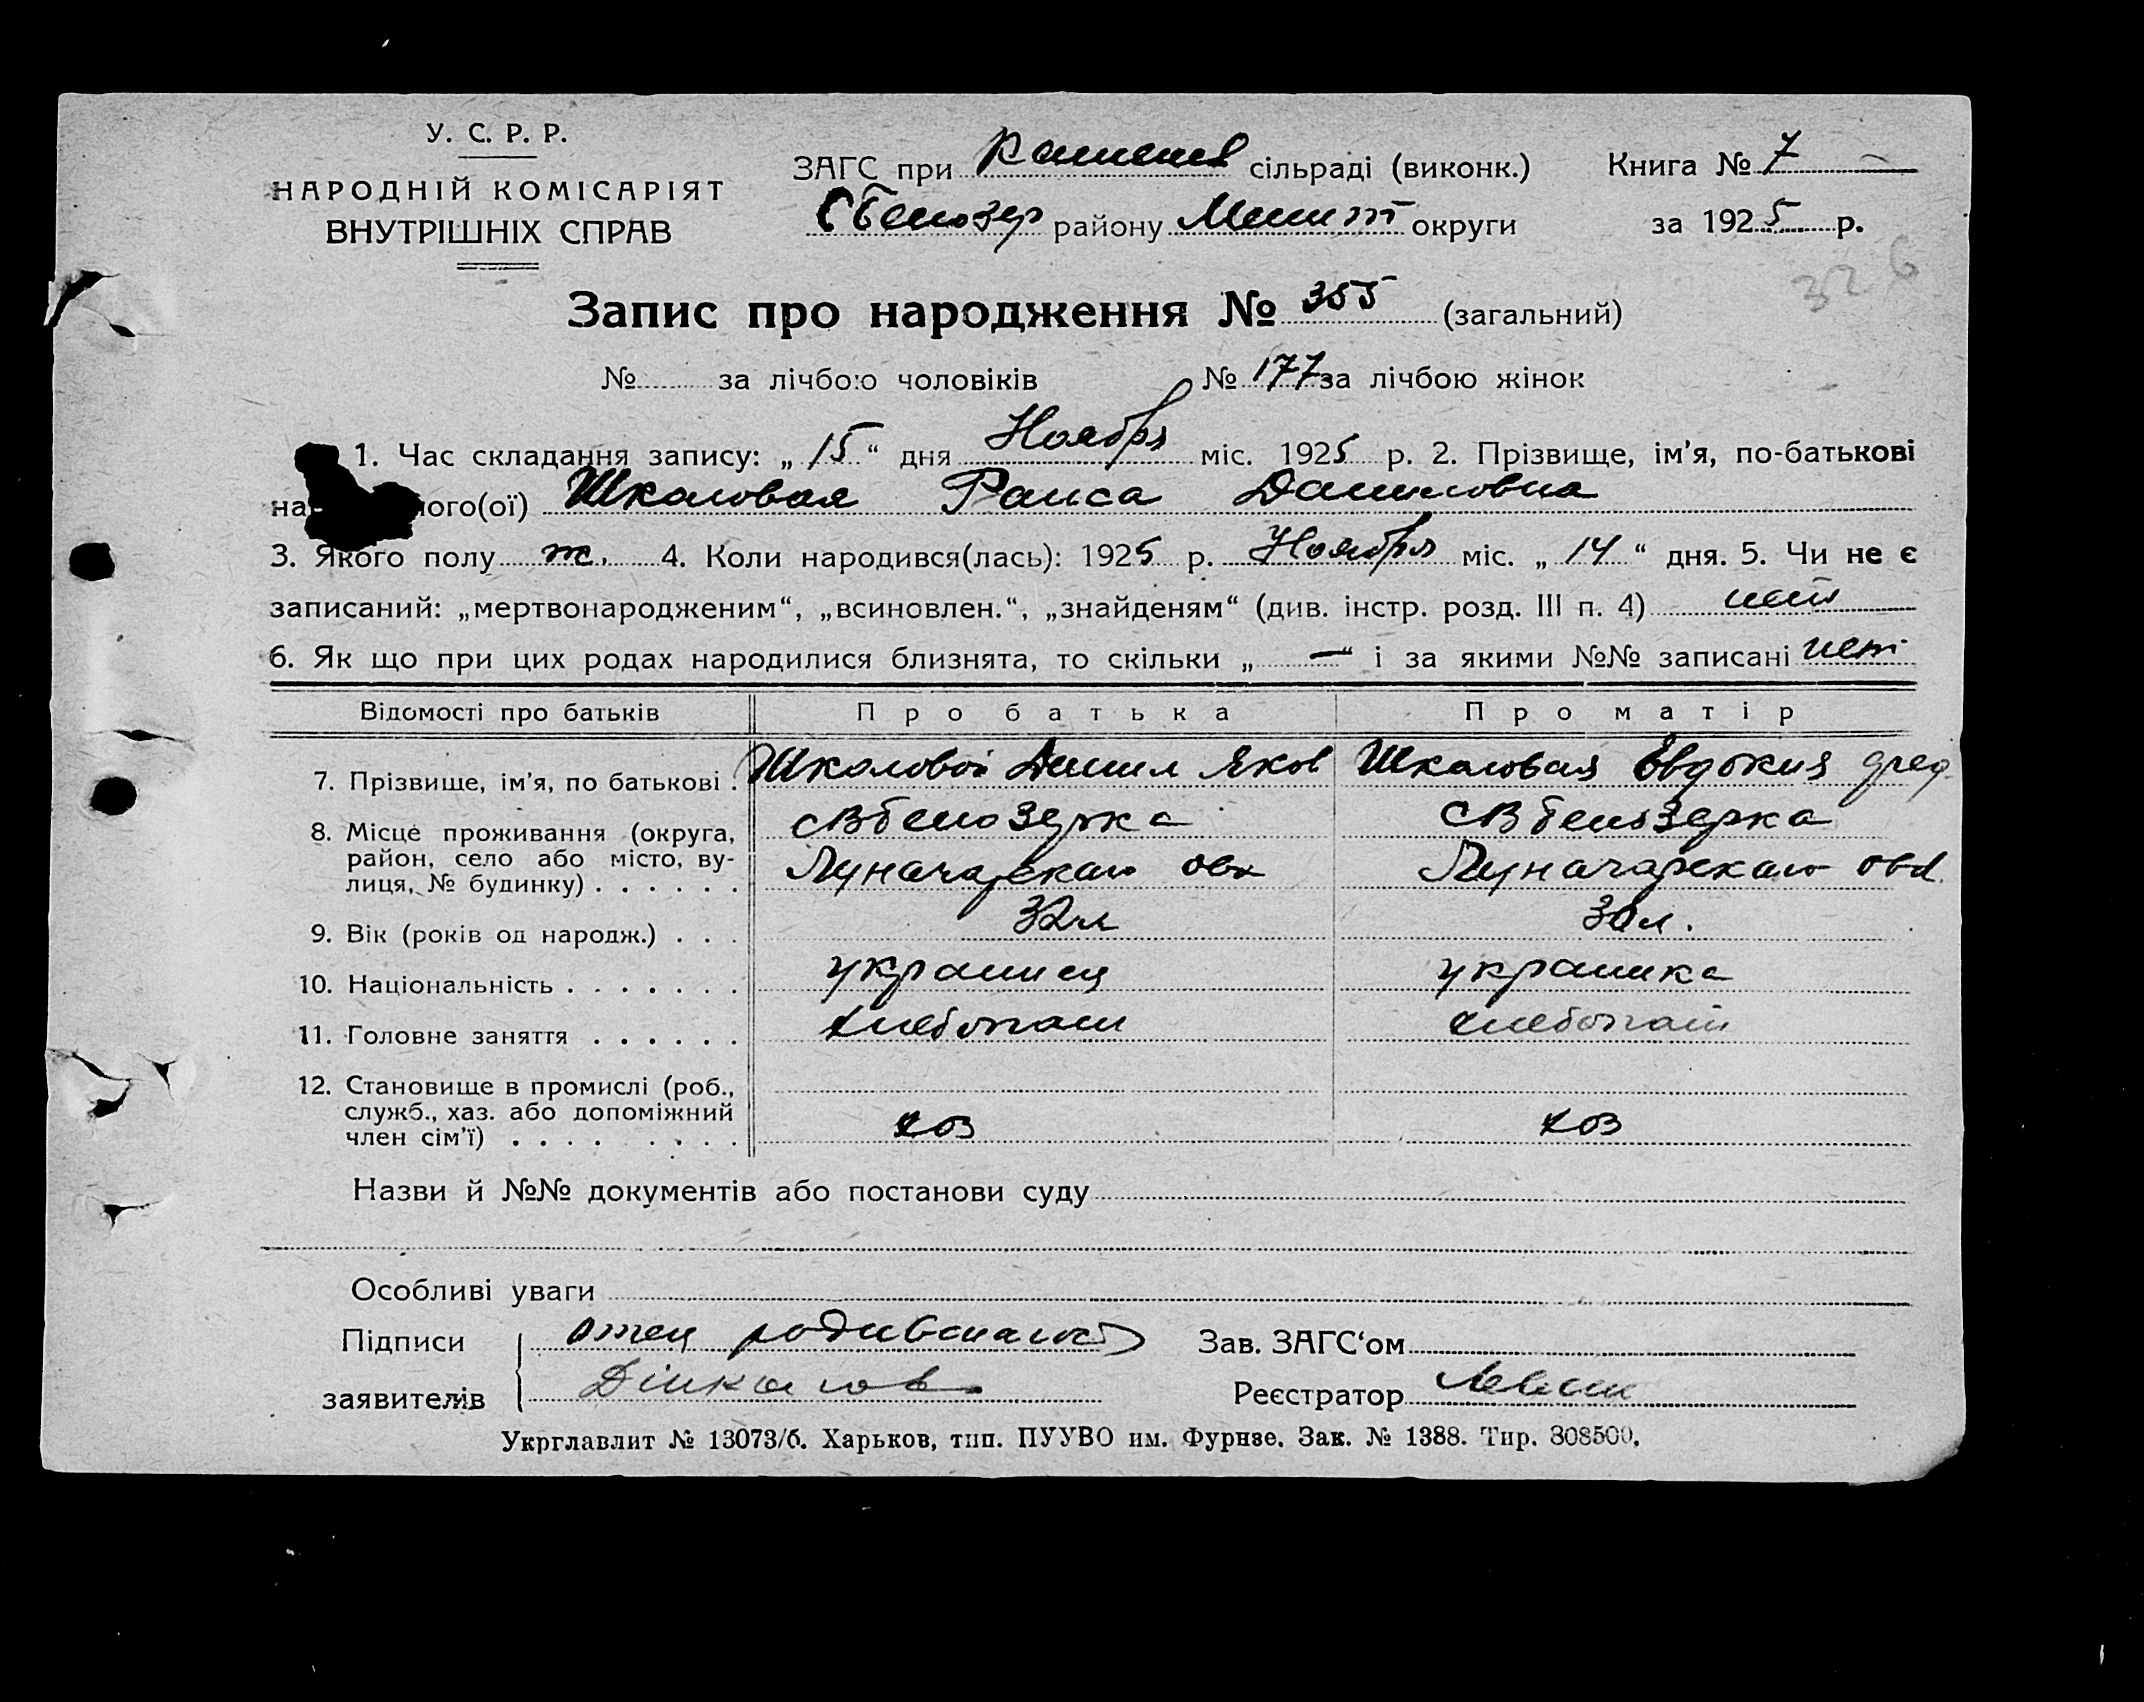 У. С. Р. Р.
НАРОДНІЙ КОМІСАРІЯТ
ВНУТРІШНІХ СПРАВ
ЗАГС при сільраді (виконк.) Книга № 7
району округи за 1925 р.
326
Запис про народження № 355 (загальний)
№ за лічбою чоловіків № 177 за лічбою жінок
1. Час складання запису: „ 15 “ дня Ноября міс. 1925 р. 2. Прізвище, ім’я, по-батькові
на ного(ої) Шкаловая Раиса Даниловна
3. Якого полу ж. 4. Коли народився(лась): 1925 р. Ноября міс. „ 14 “ дня. 5. Чи не є
записаний: „мертвонародженим“, „всиновлен.“, „знайденям“ (див. інстр. розд. III п. 4) нет
6. Як що при цих родах народилися близнята, то скільки „ — “ і за якими №№ записані нет
Відомості про батьків Про батька Про матір
7. Прізвище, ім’я, по батькові . Шкаловой Данил Яков Шкаловая Евдокия
8. Місце проживання (округа, район, село або місто, вулиця, № будинку) . . . . . . СВ белозерка СВ белозерка
Луначарскаго Луначарскаго
9. Вік (років од народж.) . . . 32 л 30 л.
10. Національність . . . . . . . украинец украинка
11. Головне заняття . . . . . . хлебопаш хлебопаш
12. Становище в промислі (роб., служб., хаз. або допоміжний член сім’ї) . . . . . . . . хоз хоз
Назви й №№ документів або постанови суду
Особливі уваги
Підписи отец родившагося Зав. ЗАГС‘ом
заявителів Реєстратор
Укрглавлит № 13073/б. Харьков, тип. ПУУВО им. Фрунзе. Зак. № 1388. Тир. 308500.